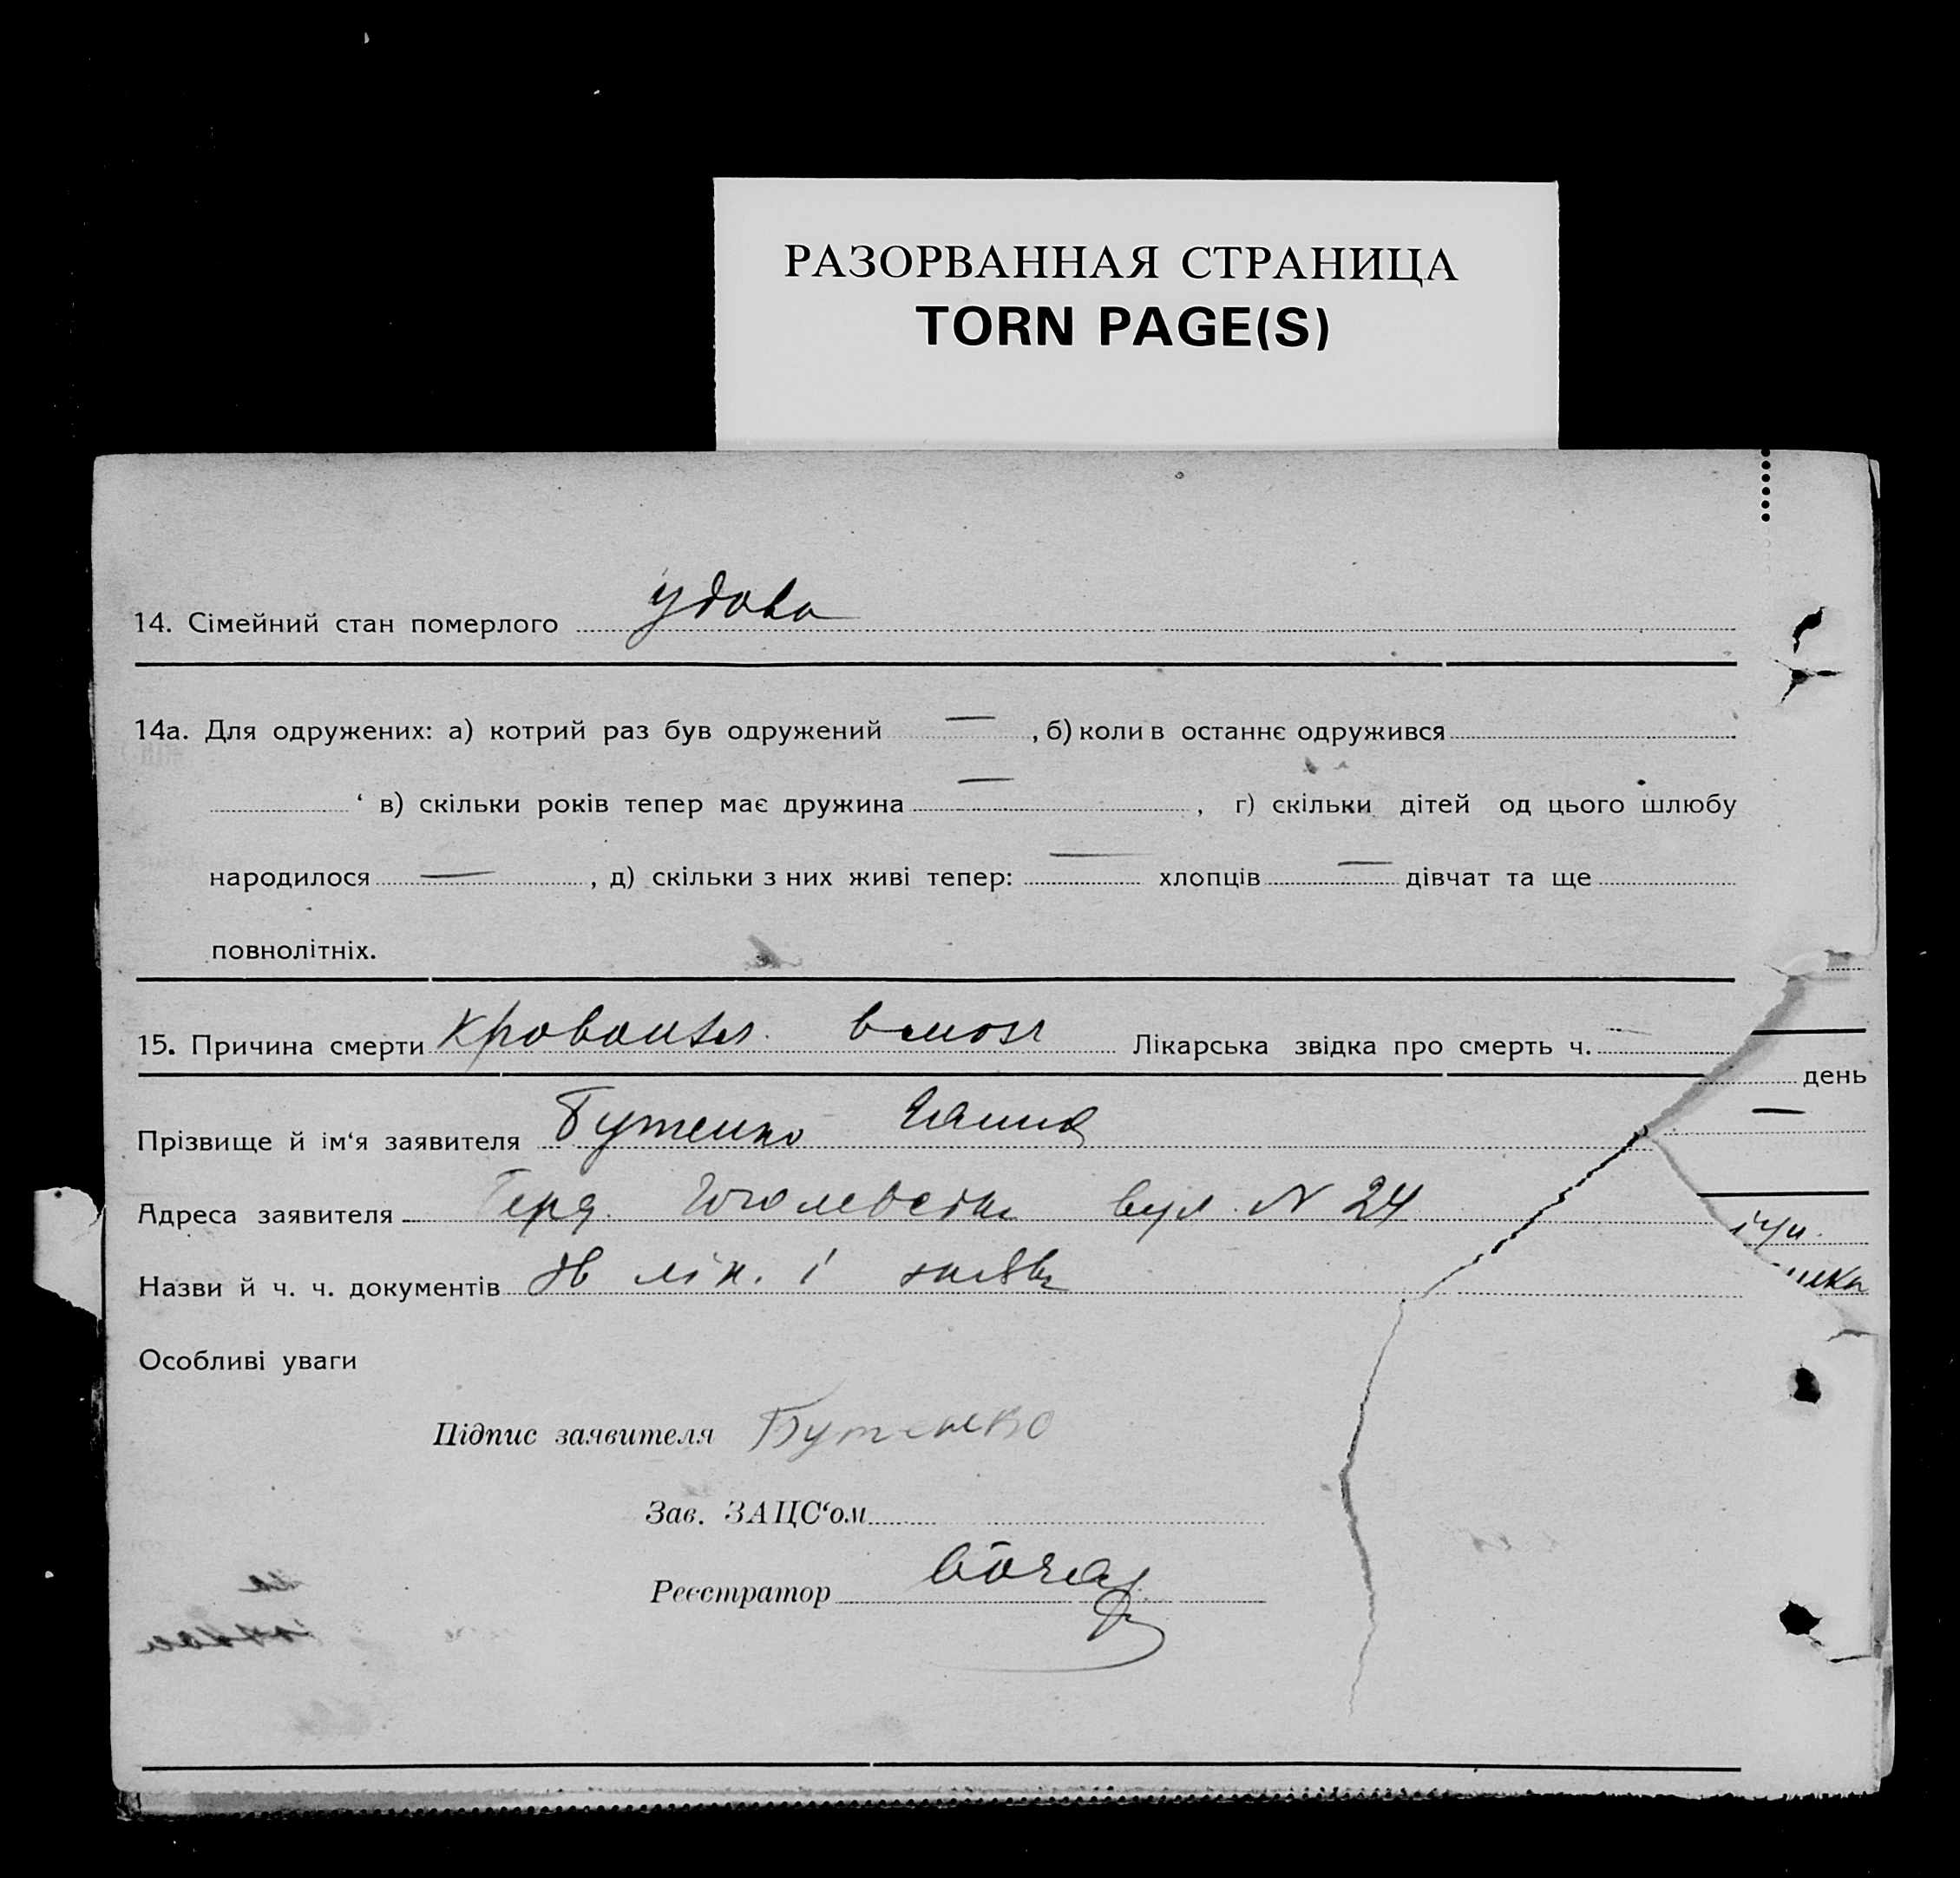 РАЗОРВАННАЯ СТРАНИЦА
TORN PAGE(S)
14. Сімейний стан померлого удова
14а. Для одружених: а) котрий раз був одружений — , б) коли в останнє одружився
‘ в) скільки років тепер має дружина — , г) скільки дітей од цього шлюбу
народилося — , д) скільки з них живі тепер: — хлопців — дівчат та ще
повнолітніх.
15. Причина смерти Лікарська звідка про смерть ч.
день
Прізвище й ім‘я заявителя Бутенко Ганна —
Адреса заявителя вул. N 24
Назви й ч. ч. документів лік. і
Особливі уваги
Підпис заявителя Бутенко
Зав. ЗАЦС‘ом
Реєстратор